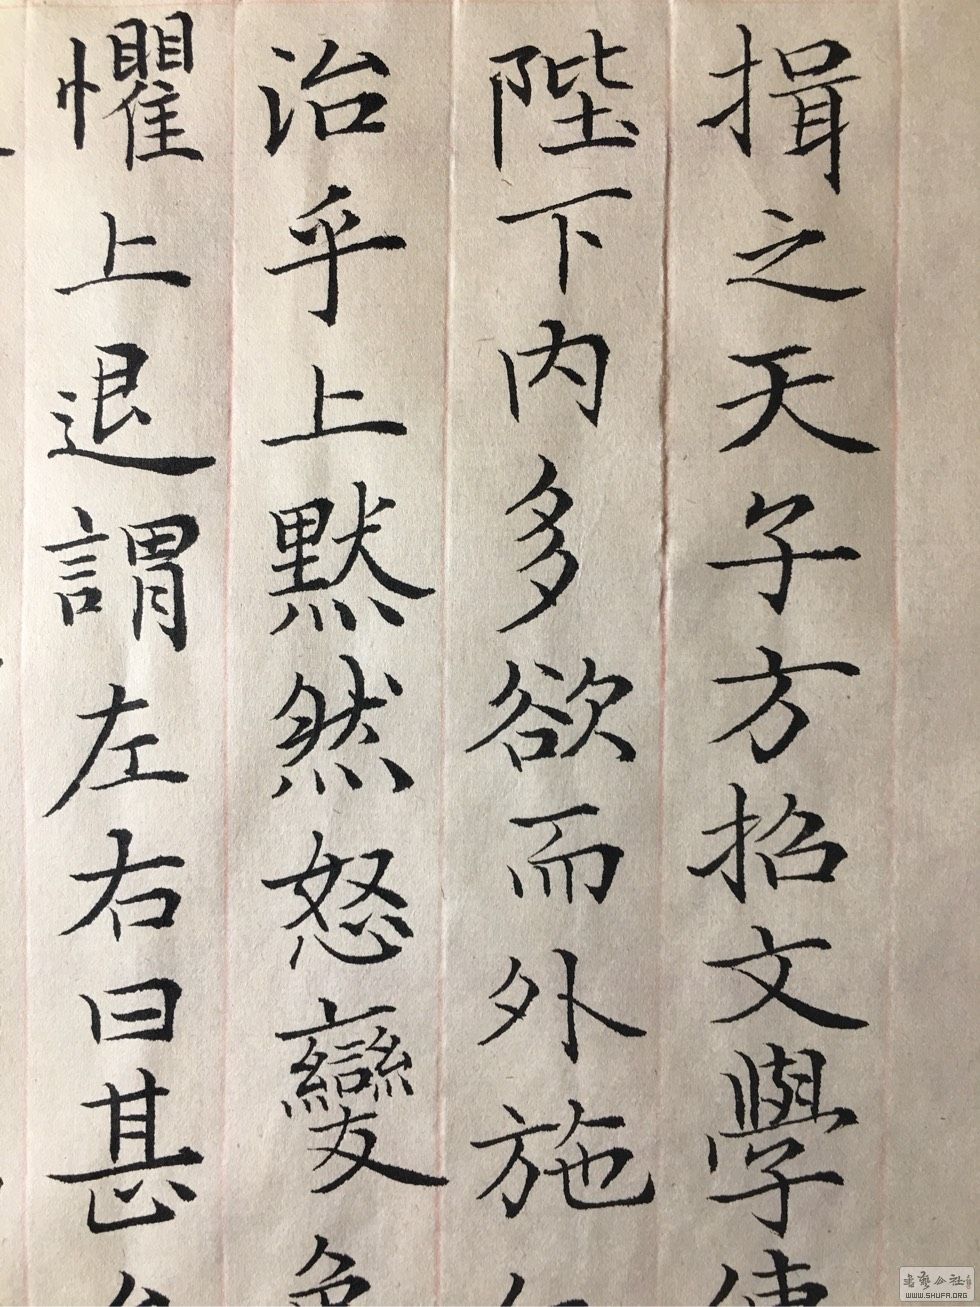 揖之天子方招文學
陛下内多欲而外施
治乎上默然怒變色
懼上退謂左右曰甚
書藝公社
WWW.SHUFA.ORG